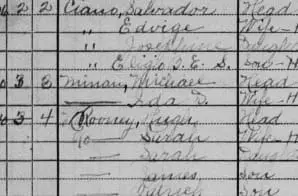 2 2 Ciano, Salvador Head
" Edvige Wife-H
" Josephine Daugh
" Eligio D. E. S. Son-H
3 3 Minau, Michael Head
— Ida D. Wife-H
3 4 Rooney, Hugh Head
— Sarah Wife-H
— Sarah Daugh
— James, Son
— Patrick Son